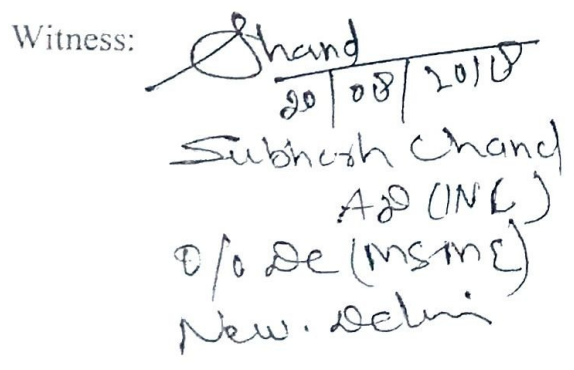 Witness: Shand
20/08/2018
Subhash Chand
AD (INL)
O/o DC (MSME)
New. Delhi